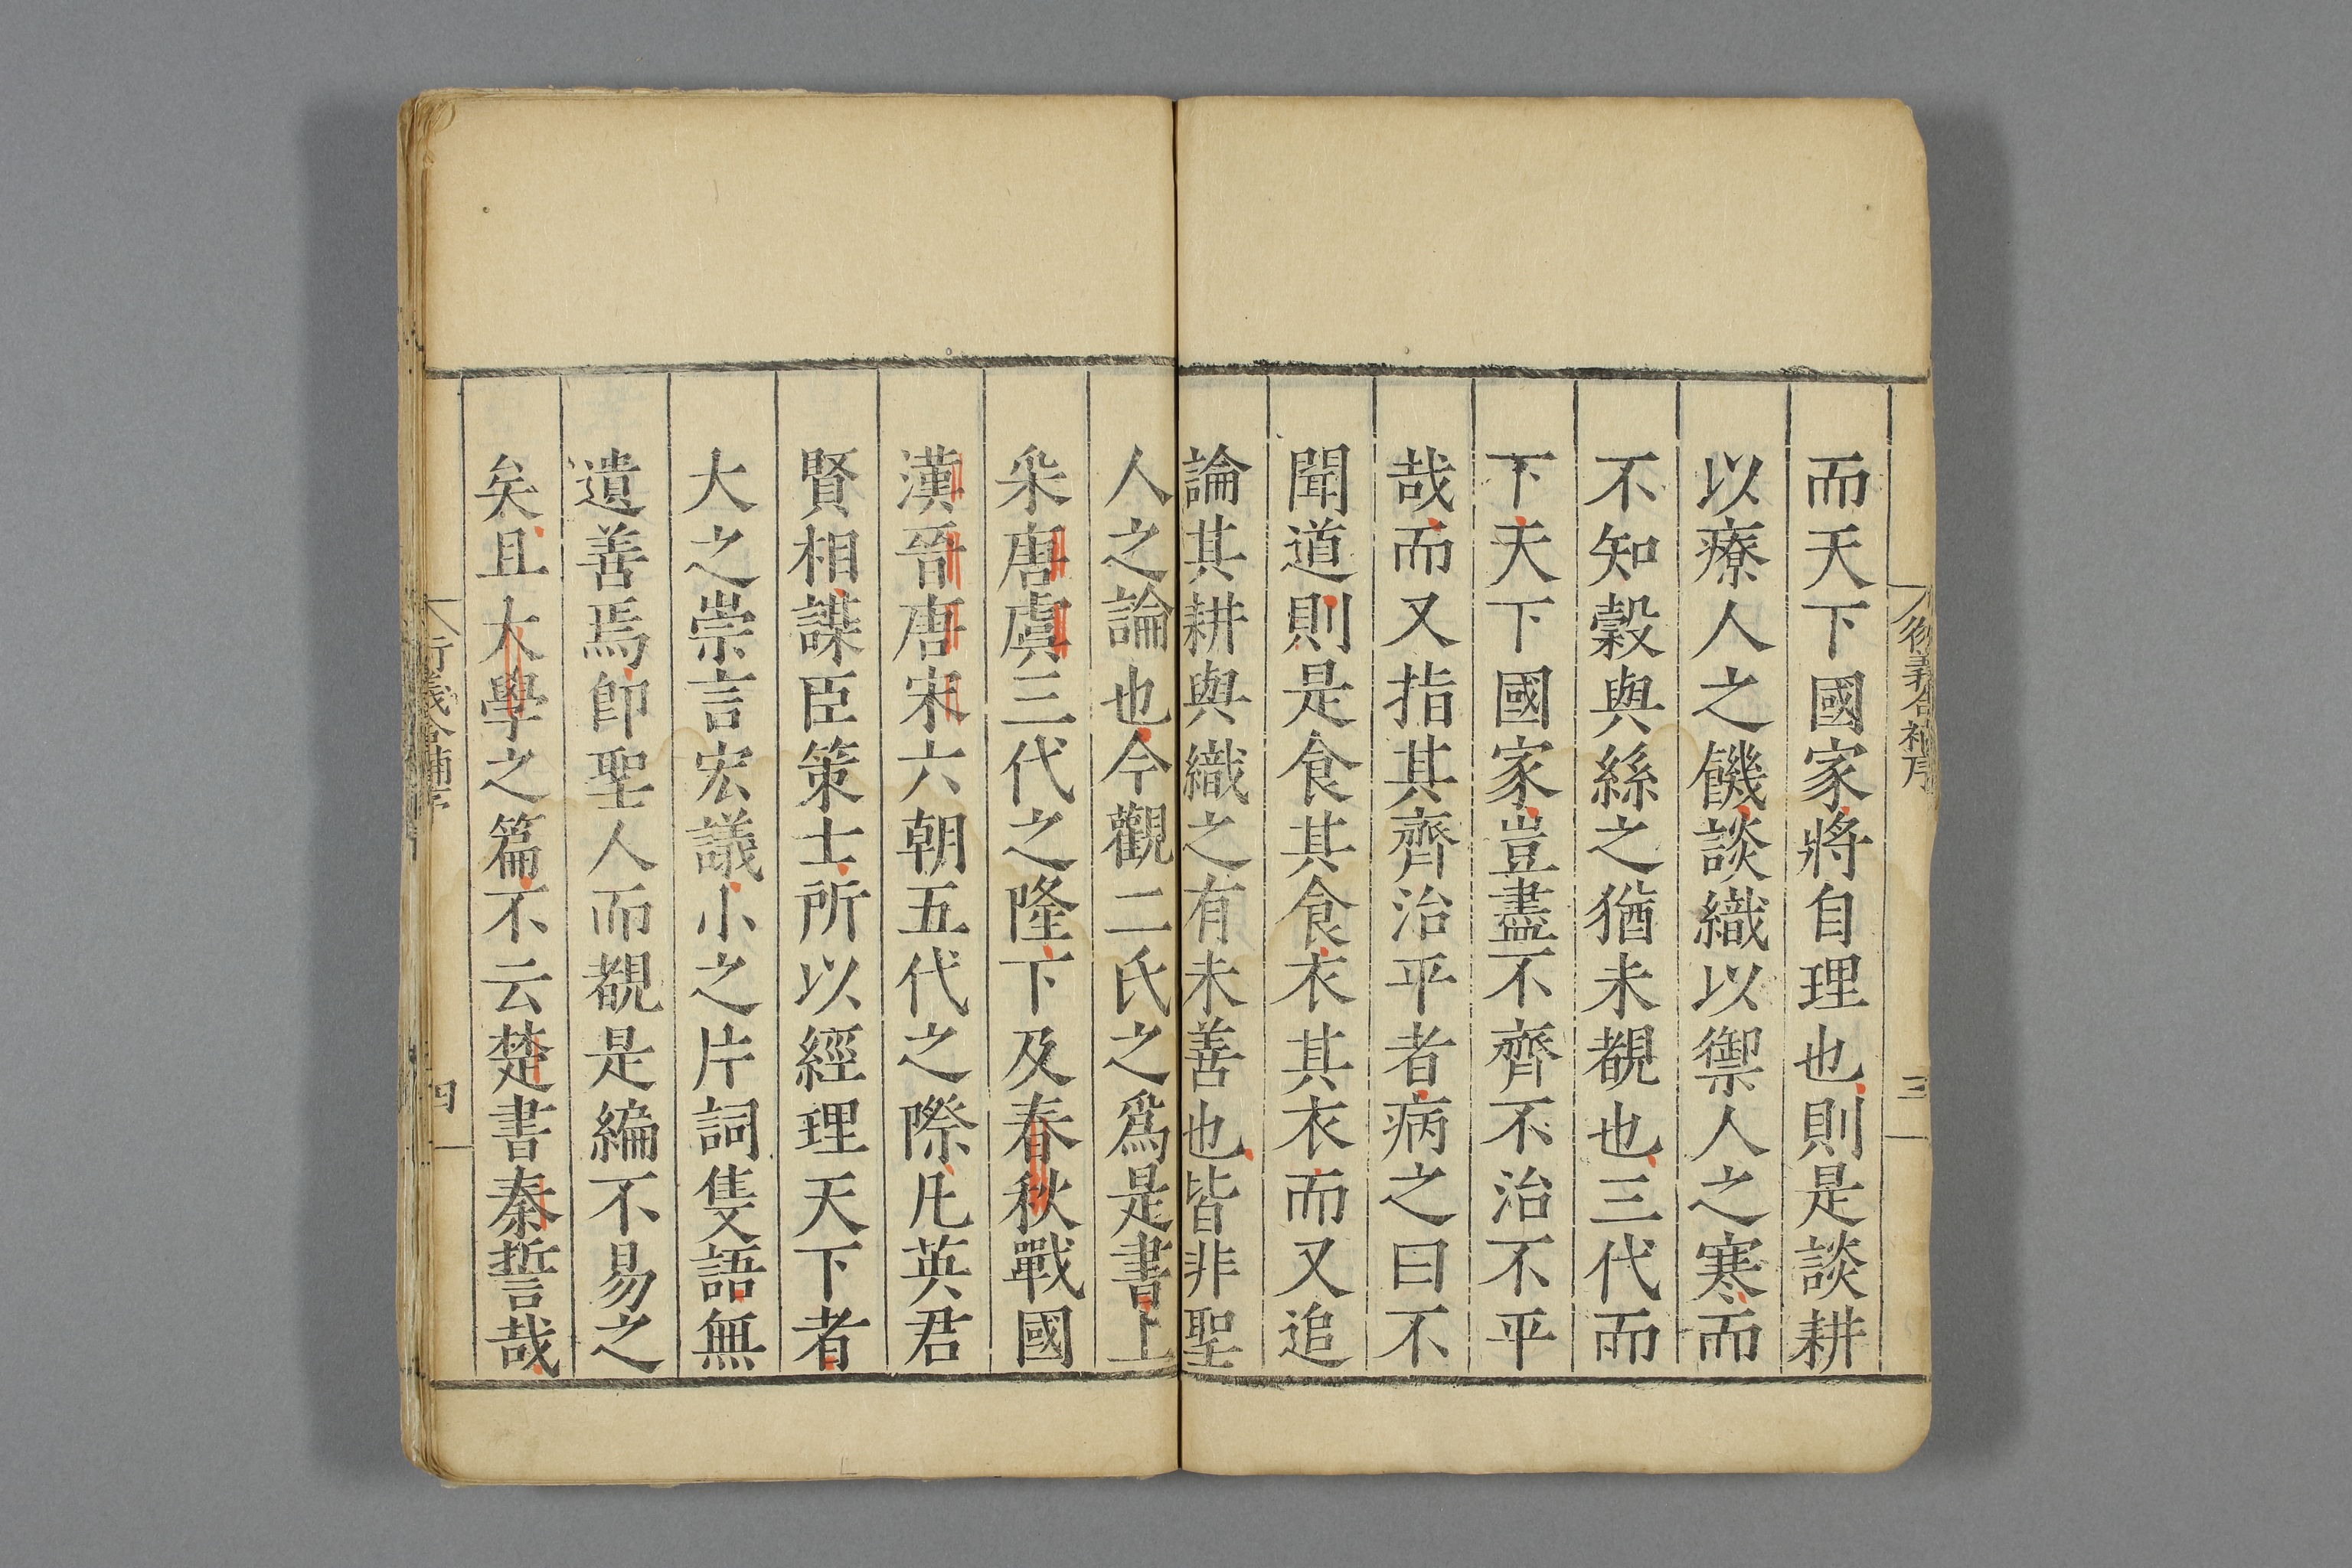 而天下國家將自理也則是談耕
以療人之饑談織以禦人之寒而
不知穀與絲之猶未覩也三代而
下天下國家豈盡不齊不治不平
哉而又指其齊治平者病之曰不
聞道則是食其食衣其衣而又追
論其耕與織之有未善也皆非聖
人之論也今觀二氏之爲是書上
采唐虞三代之隆下及春秋戰國
漢晉唐宋六朝五代之際凡英君
賢相謀臣策士所以經理天下者
大之崇言宏議小之片詞隻語無
遺善焉卽聖人而覩是編不易之
矣且大學之篇不云楚書秦誓哉
三
四